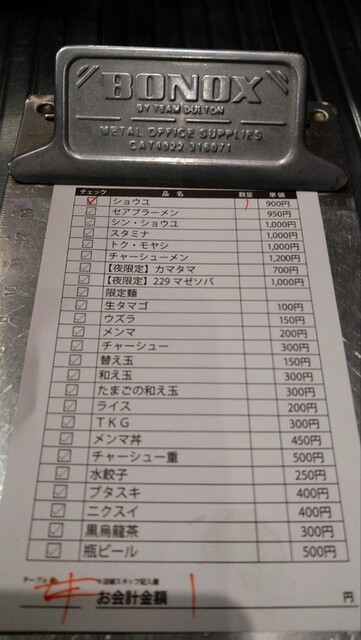 BONOX
BY TEAM DULTON
METAL OFFICE SUPPLIES
CAT4022 315071
チェック 品名 数量 単価
ショウユ 1 900円
セアブラーメン 950円
シン・ショウユ 1,000円
スタミナ 1,000円
トク・モヤシ 1,000円
チャーシューメン 1,200円
【夜限定】カマタマ 700円
【夜限定】229 マゼソバ 1,000円
限定麺
生タマゴ 100円
ウズラ 150円
メンマ 200円
チャーシュー 300円
替え玉 150円
和え玉 300円
たまごの和え玉 300円
ライス 200円
TKG 300円
メンマ丼 450円
チャーシュー重 500円
水餃子 250円
ブタスキ 400円
ニクスイ 400円
黒烏龍茶 300円
瓶ビール 500円
テーブル ※店舗スタッフ記入欄
お会計金額 1 円